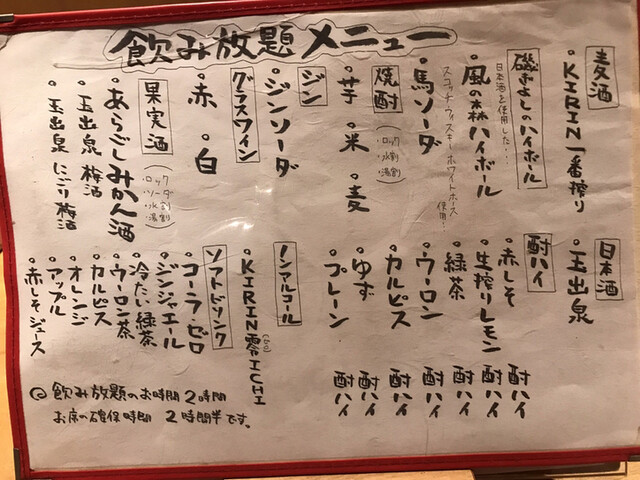 飲み放題メニュー
麦酒
・KIRIN一番搾り
磯きよしのハイボール
日本酒を使用した・・・
・風の森ハイボール
・馬ソーダ
スコッチウィスキーホワイトホース使用・・
焼酎
(・ロック
・水割
・湯割)
・芋 ・米 ・麦
ジン
・ジンソーダ
グラスワイン
・赤 ・白
果実酒
(・ロック
・ソーダ割
・水割
・湯割)
・あらごしみかん酒
・玉出泉 梅酒
・玉出泉 にごり梅酒
日本酒
・玉出泉
酎ハイ
・赤しそ酎ハイ
・生搾りレモン酎ハイ
・緑茶酎ハイ
・ウーロン酎ハイ
・カルピス酎ハイ
・ゆず酎ハイ
・プレーン酎ハイ
ノンアルコール
・KIRIN零ICHI
ソフトドリンク
・コーラゼロ
・ジンジャエール
・冷たい緑茶
・ウーロン茶
・カルピス
・オレンジ
・アップル
・赤しそジュース
◎飲み放題のお時間 2時間
お席の確保時間 2時間半です。